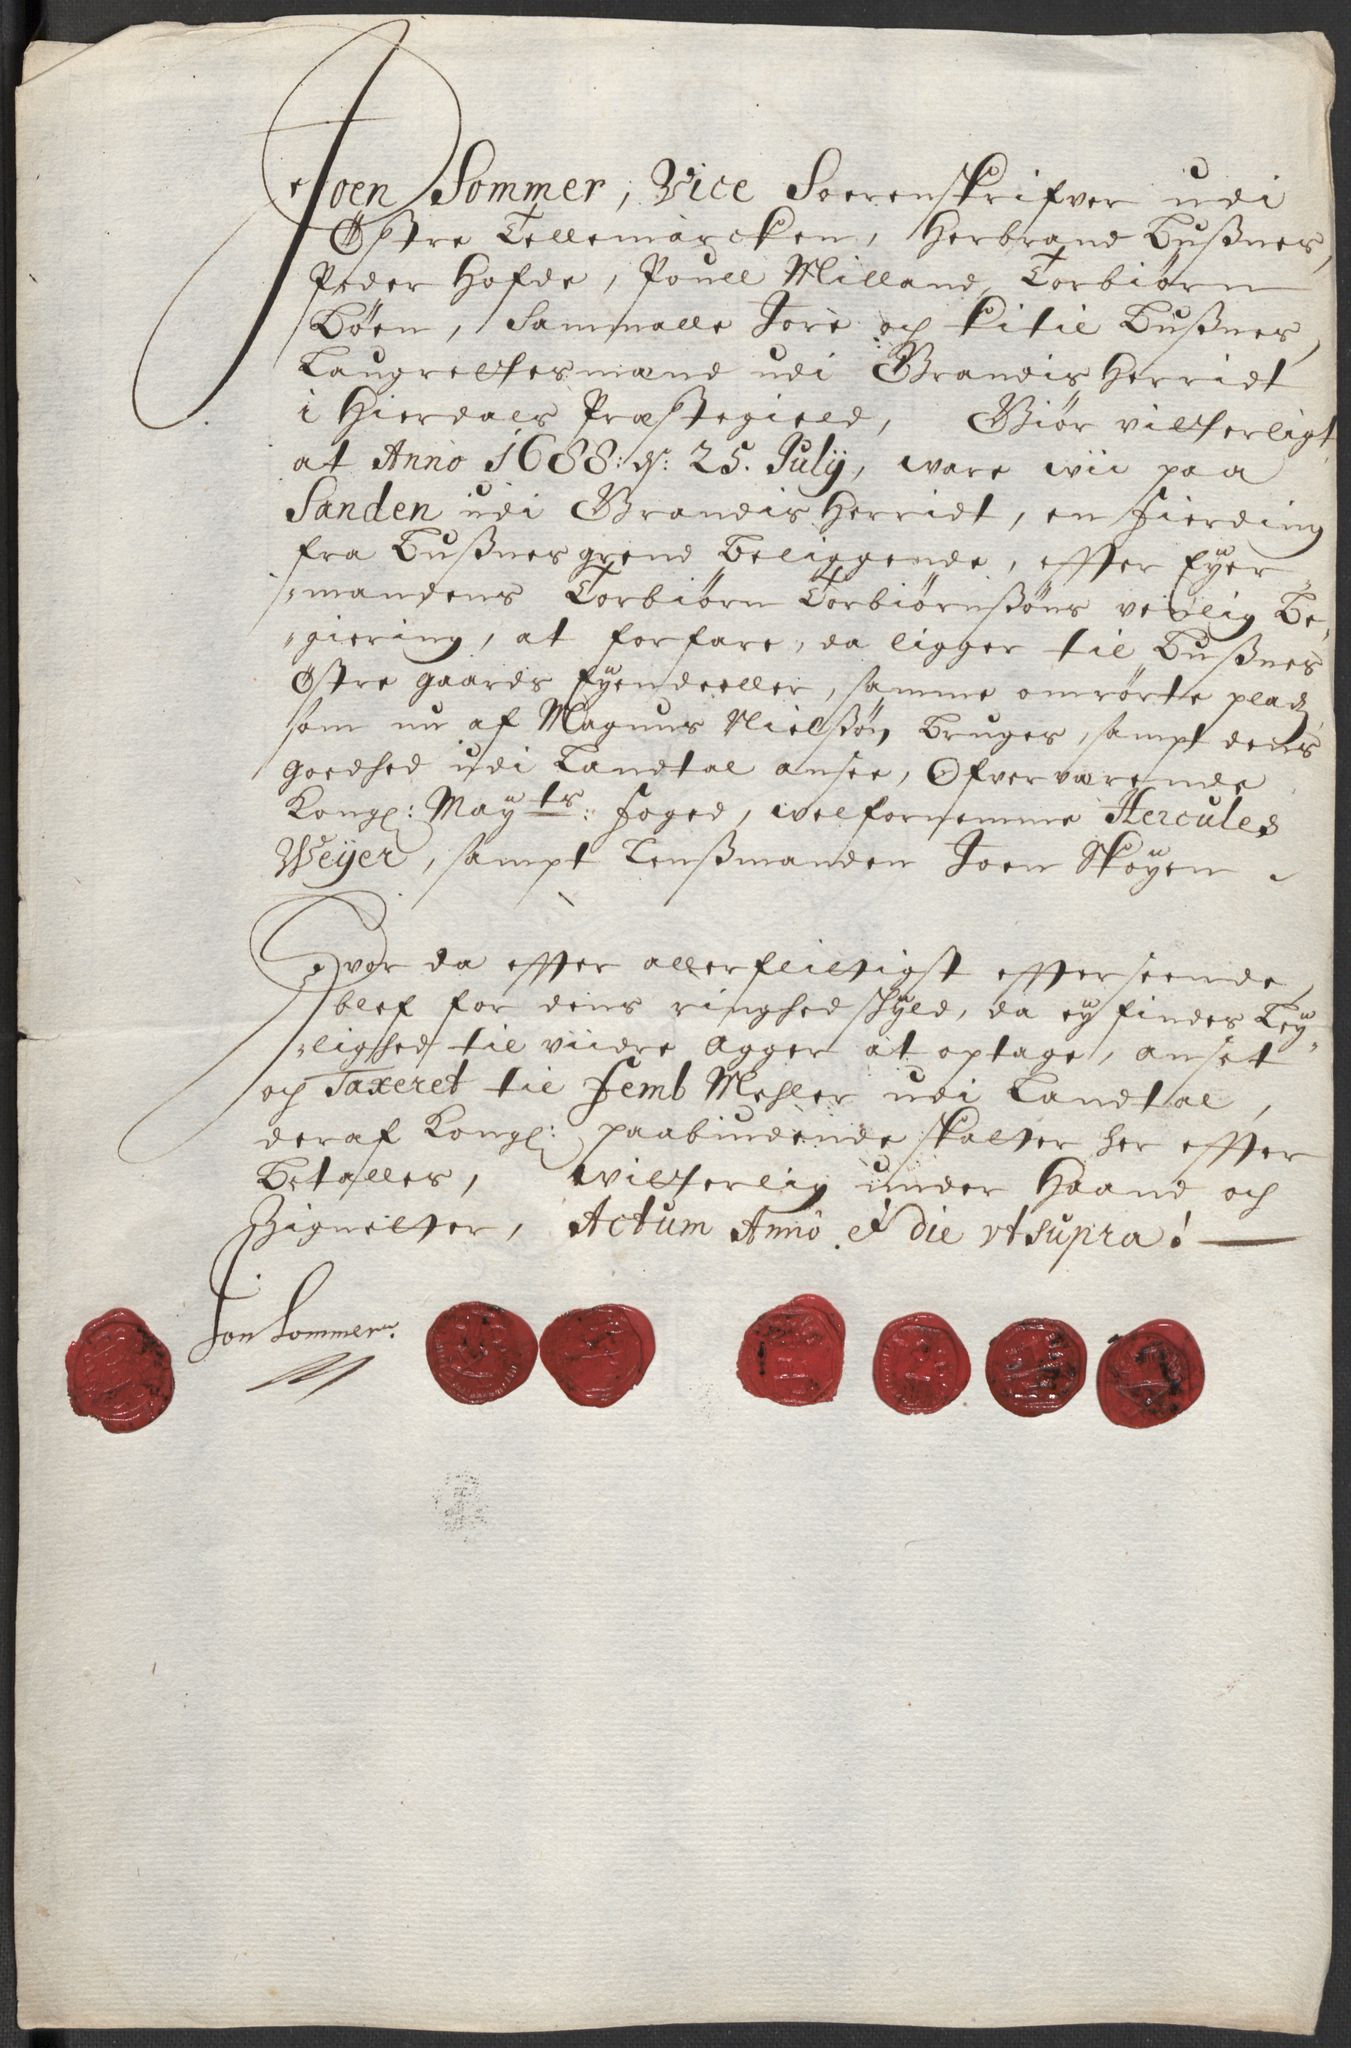 Joen Sommer, Vice Soerenskrifver udi
Østre Tellemarcken, Herbrand Bußnes,
Peder Hofde, Pouell Milland, Torbiørn
Bøen, Sammalle Tore och Kitil Bußnes,
Laugrettesmænd udi Brandis Herridt
i Hierdals Præstegield, Giør vitterligt
at Anno 1688: d: 25. July, ware wii paa
Sanden udi Brandis Herridt, en fierding
fra Bußnes grend beliggende, effter Eyer
=mandens Torbiørn Torbiørnßøns venlig Be=
=giering, at forfare, da ligger til Bußnes
Østre gaards Eyendeeller, samme omrørte plads
som nu af Magnus Nielßøn bruges, sampt dens
goedhed udi Landtal ansee, Ofverværende
Kongl: Mayts: foged, welfornemme Hercules
Weyer, sampt Lenßmanden Joen Skøyen
Hvor da effter allerflittigst efterseende,
blef for dens ringhed skyld, da ey findes Ley=
=lighed til viidre Agger at optage, anset
och Taxeret til femb Mehler udi Landtal,
deraf Kongl: paabiudende skatter her effter
Betalles, witterlig under Haand och
Zignetter, Actum Anno & die vt supra!
Jon Sommer